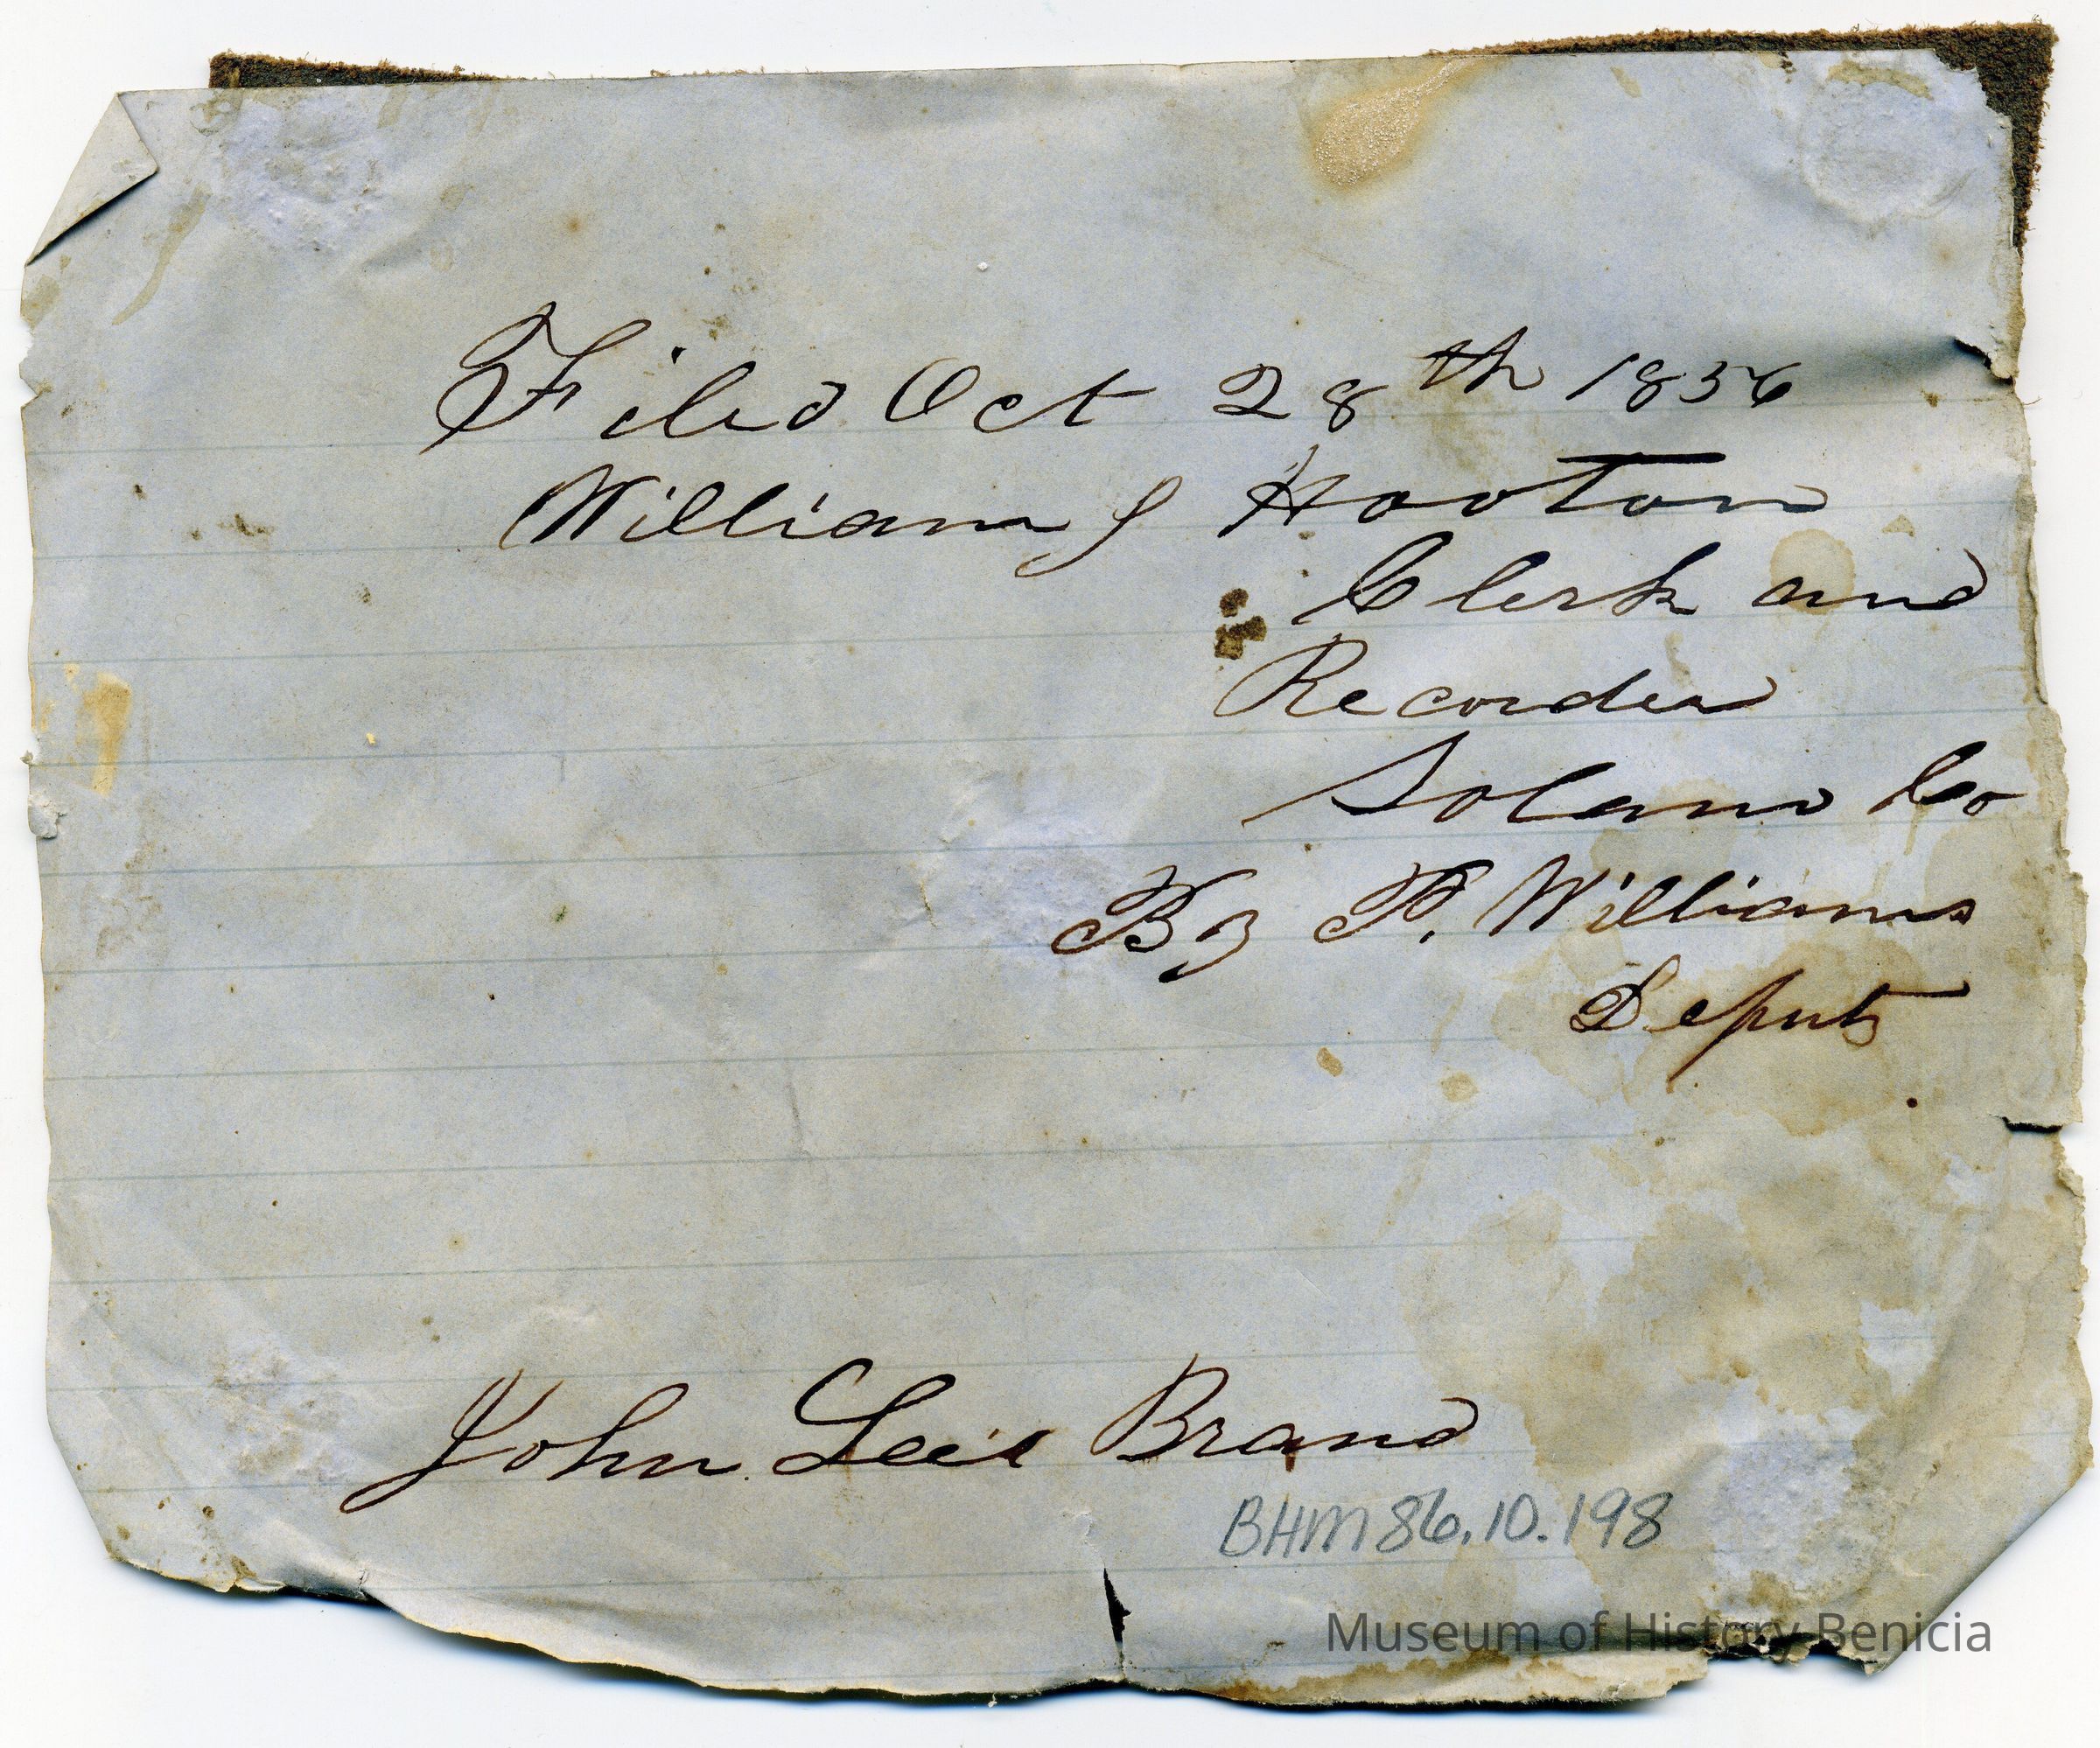 Filed Oct 28th 1856
William J Hooton
Clerk and
Recorder
Solano Co
By P. Williams
Deputy
John Leis Brand
BHM 86.10.198
Museum of History Benicia